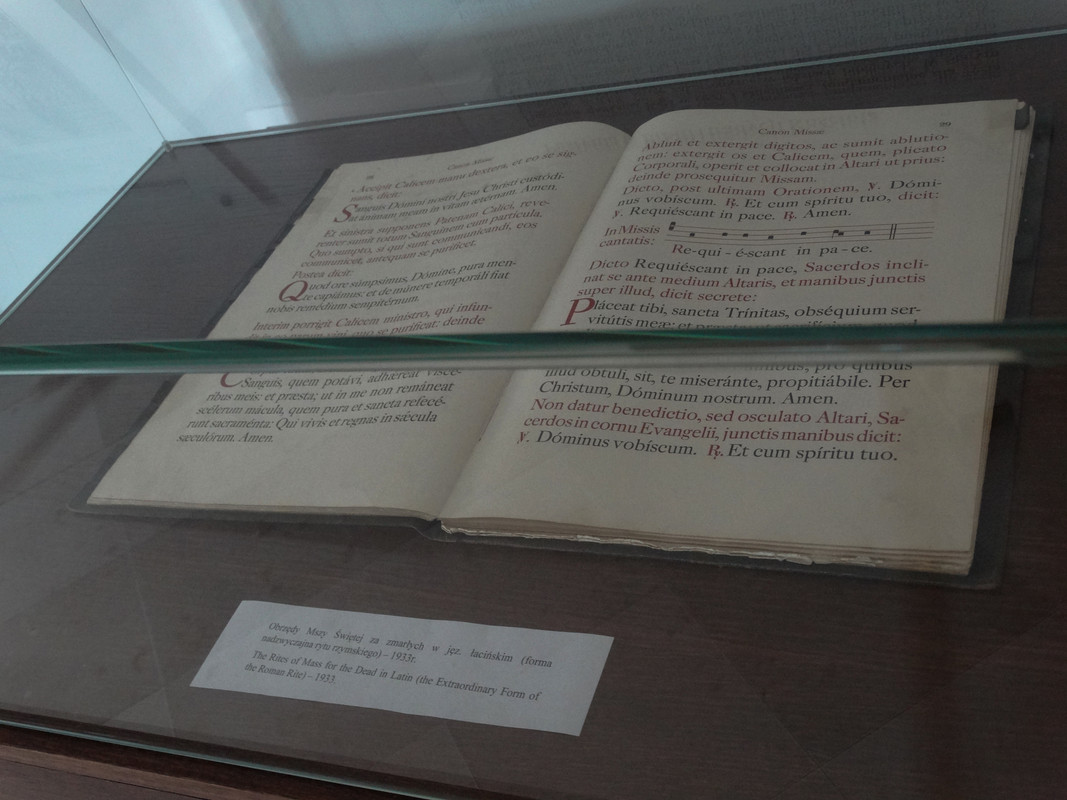 Canon Missæ
Accipit Calicem manu dextera, et eo se sig-
nans, dicit:
Sanguis Dómini nostri Jesu Christi custódi-
at ánimam meam in vitam ætérnam. Amen.
Et sinistra supponens Patenam Calici, reve-
renter sumit totum Sanguinem cum particula.
Quo sumpto, si qui sunt communicandi, eos
communicet, antequam se purificet.
Postea dicit:
Quod ore súmpsimus, Dómine, pura men-
te capiámus: et de múnere temporáli fiat
nobis remédium sempitérnum.
Interim porrigit Calicem ministro, qui infun-
se purificat: deinde
Sanguis, quem potávi, adhǽreat viscé-
ribus meis: et præsta; ut in me non remáneat
scélerum mácula, quem pura et sancta refecé-
runt sacraménta: Qui vivis et regnas in sǽcula
sæculórum. Amen.
Canon Missæ 29
Abluit et extergit digitos, ac sumit ablutio-
nem: extergit os et Calicem, quem, plicato
Corporali, operit et collocat in Altari ut prius:
deinde prosequitur Missam.
Dicto, post ultimam Orationem, ℣. Dómi-
nus vobíscum. ℟. Et cum spíritu tuo, dicit:
℣. Requiéscant in pace. ℟. Amen.
In Missis
cantatis:
Re-qui-é-scant in pa-ce.
Dicto Requiéscant in pace, Sacerdos incli-
nat se ante medium Altaris, et manibus junctis
super illud, dicit secrete:
Pláceat tibi, sancta Trínitas, obséquium ser-
vitútis meæ:
pro quibus
illud óbtuli, sit, te miseránte, propitiábile. Per
Christum, Dóminum nostrum. Amen.
Non datur benedictio, sed osculato Altari, Sa-
cerdos in cornu Evangelii, junctis manibus dicit:
℣. Dóminus vobíscum. ℟. Et cum spíritu tuo.
Obrzędy Mszy Świętej za zmarłych w jęz. łacińskim (forma
nadzwyczajna rytu rzymskiego) – 1933r.
The Rites of Mass for the Dead in Latin (the Extraordinary Form of
the Roman Rite) – 1933.